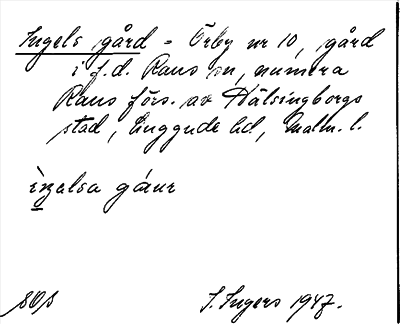 Ingels gård = Örby nr 10, gård
i f.d. Raus sn, numera
Raus förs. av Hälsingborgs
stad, Luggude hd, Malm. l.
gáur
S. Ingers 1947.